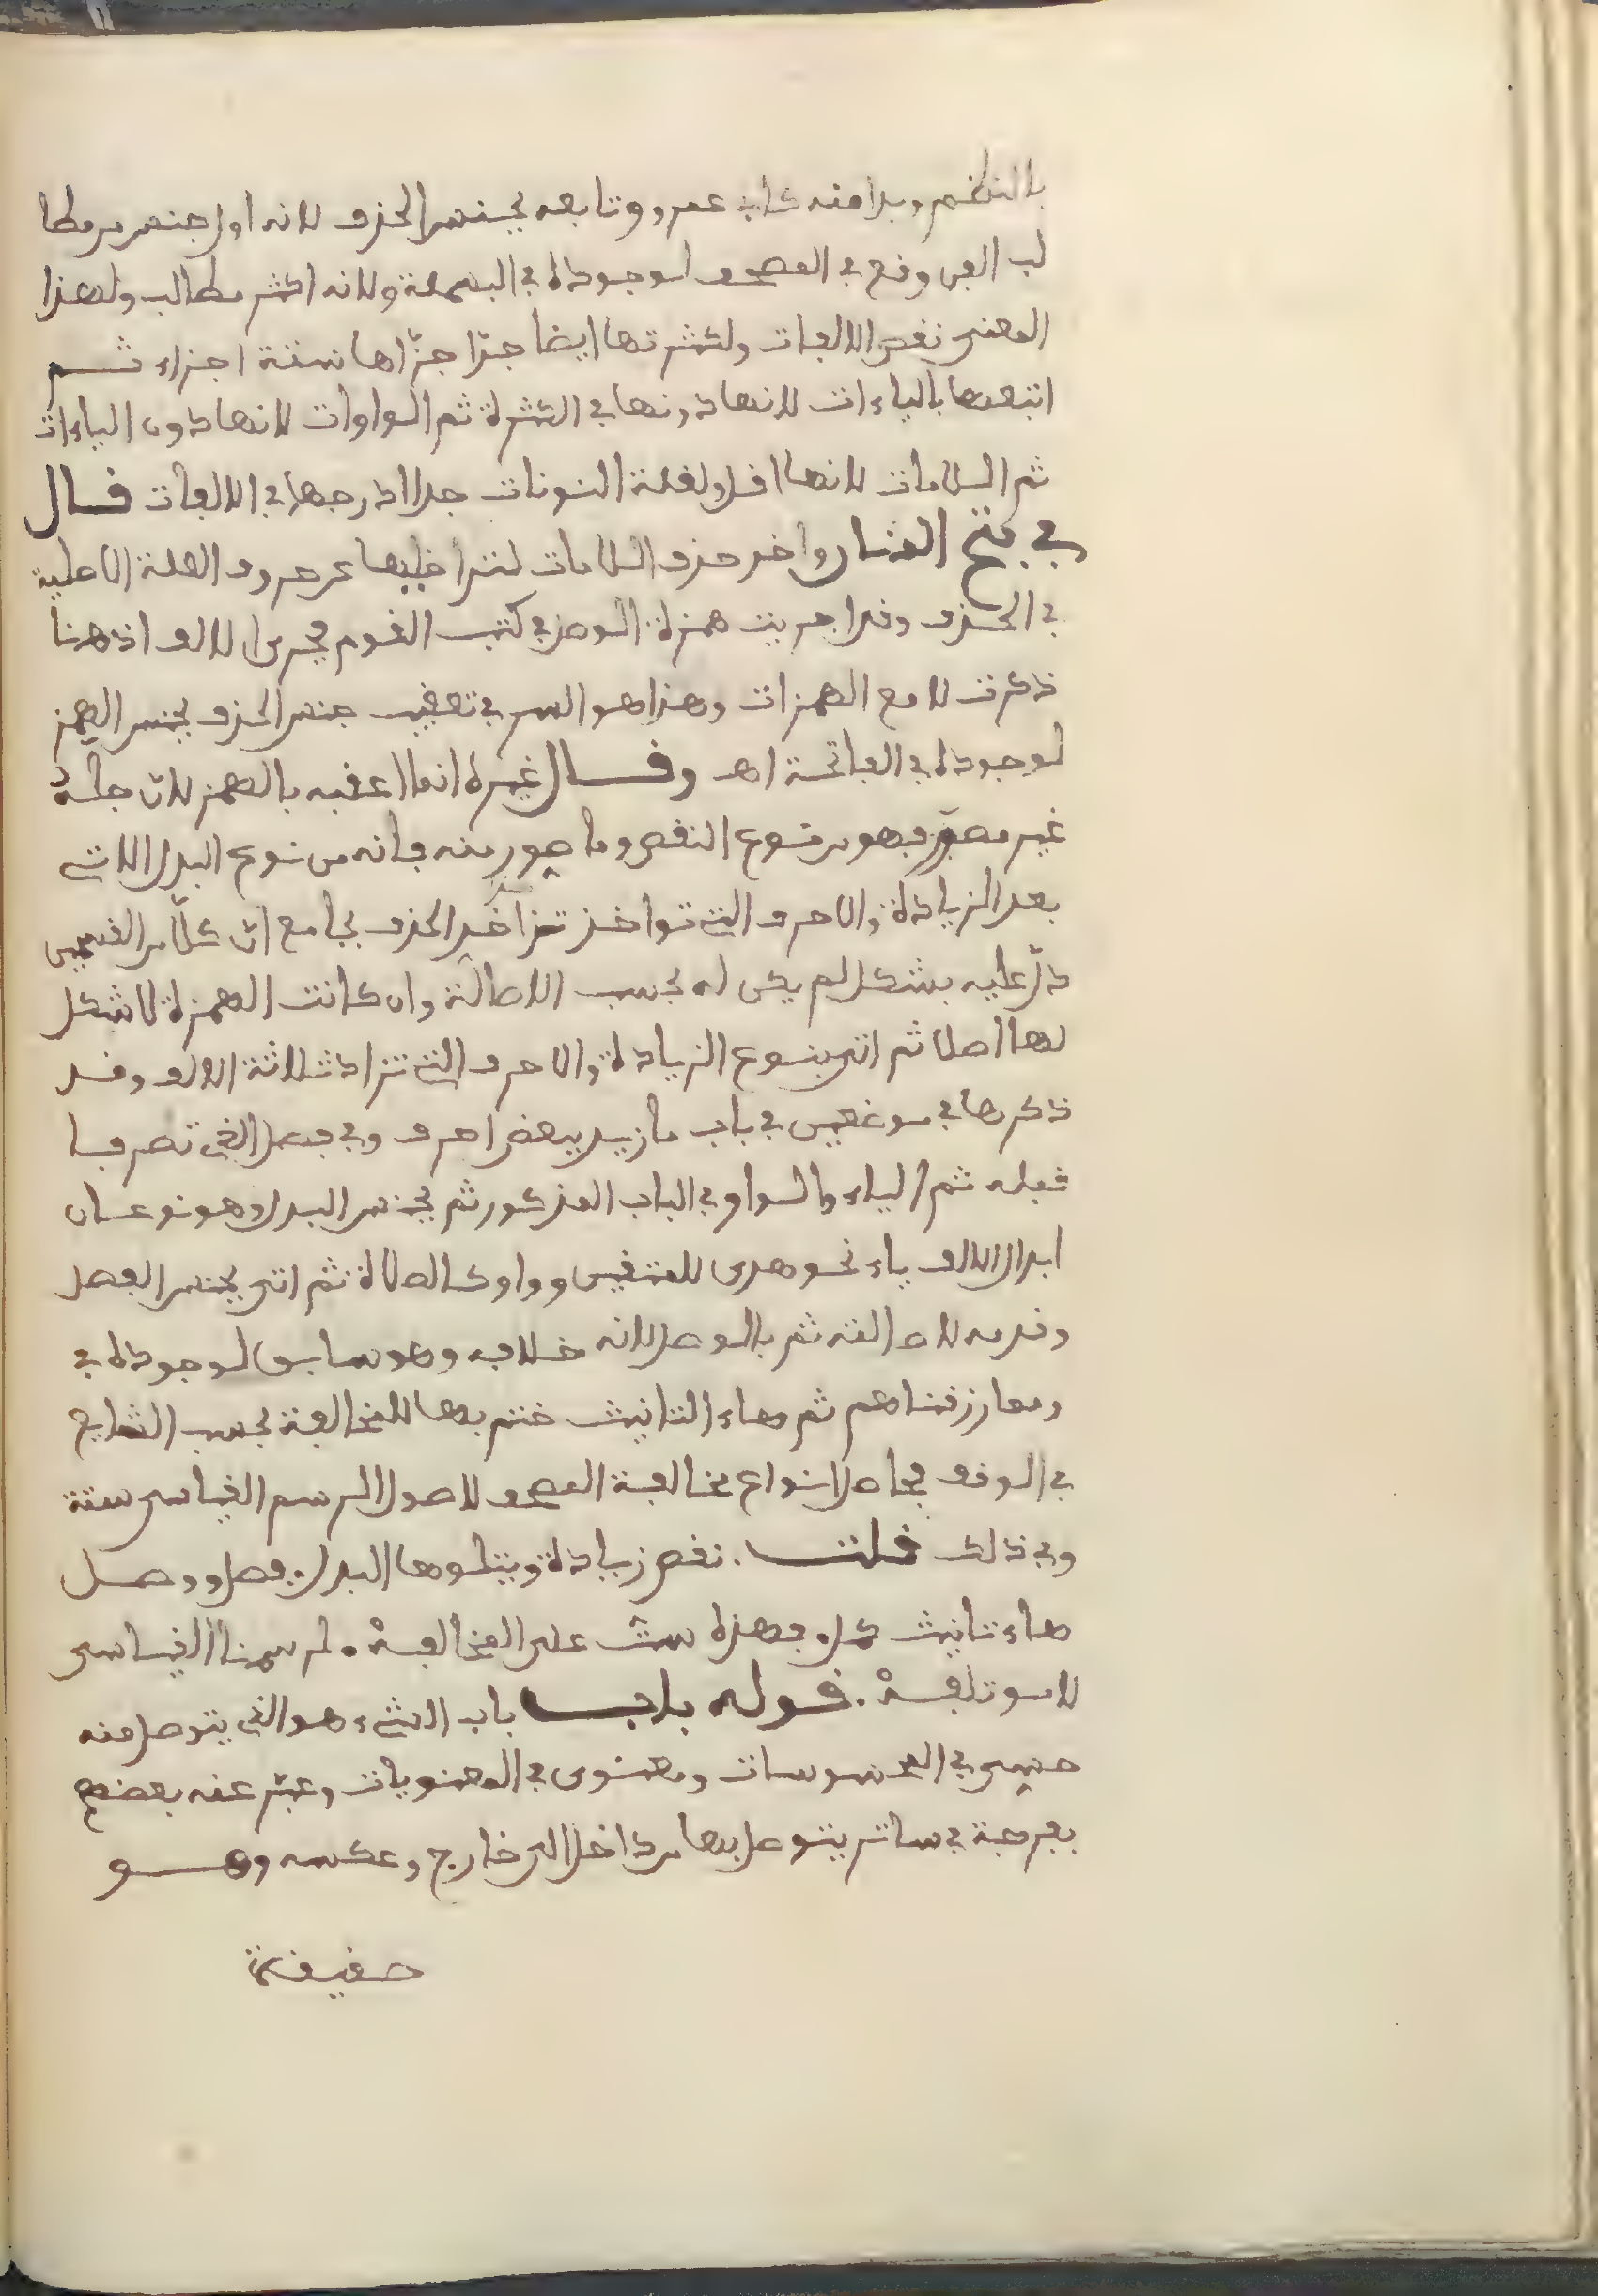 بالنظم وبدا منه كاب عمرو وتابعه بجنس الحذف لانه اول جنس من مطا
لب الفن وقع في المصحف لوجوده في البسملة ولانه اكثر مطالب ولهذا
المعنى نقص الالفات ولكثرتها ايضا جدّا جزّاها ستة اجزاء ثم
اتبعها بالياءات لانها دونها في الكثرة ثم الواوات لانها دون الياءات
ثم اللامات لانها اقل ولقلة النونات جدا ادرجها في الالفات قال
في فتح المنان واخر حذف اللامات لتراخيها عن حروف العلة الاصلية
في الحذف وقد اجريت همزة الوصل في كتب القوم مجرى الالف اذ هنا
ذكرت لا مع الهمزات وهذا هو السر في تعقيب جنس الحذف بجنس الهمز
لوجوده في الفاتحة اهـ وقال غيره انما اعقبه بالهمز لان جله
غير مصوّر فهو من نوع النقص وما صور منه فانه من نوع البدل الاتي
بعد الزيادة والاحرف التي تواخذ تزاخير الحذف بجامع ان كلّا من القسمين
دلّ عليه بشكل لم يكن له بحسب الاصالة وان كانت الهمزة لا شكل
لها اصلا ثم اتى بنوع الزيادة والاحرف التي تزاد ثلاثة الالف وقد
ذكرها في موضعين في باب ما زيد ببعض احرف وفي فصل الذي تصرفا
قبله ثم الياء والواو في الباب المذكور ثم بجنس البدل وهو نوعان
ابدال الالف ياء نحو هدى للمتقين وواو كالصلاة ثم اتى بجنس الفصل
وقدمه لاصالته ثم بالوصل لانه خلافه وهو سابق لوجوده في
ومما رزقناهم ثم هاء التانيث ختم بها للمخالفة بحسب الشايع
في الوقف فحاصل انواع مخالفة المصحف لاصول الرسم القياسي ستة
وفي ذلك قلت . نقص زيادة ويتلوها البدل . فصل ووصل
هاء تانيث كمل . فهذه ست على المخالفهْ . لرسمنا القياسي
لا موتلفهْ . قوله باب باب الشيء هو الذي يتوصل منه
حسي في المحسوسات ومعنوى في المعنويات وعبّر عنه بعضهم
بفرجة في ساتر يتوصل بها من داخل الى خارج وعكسه وهو
حقيقة